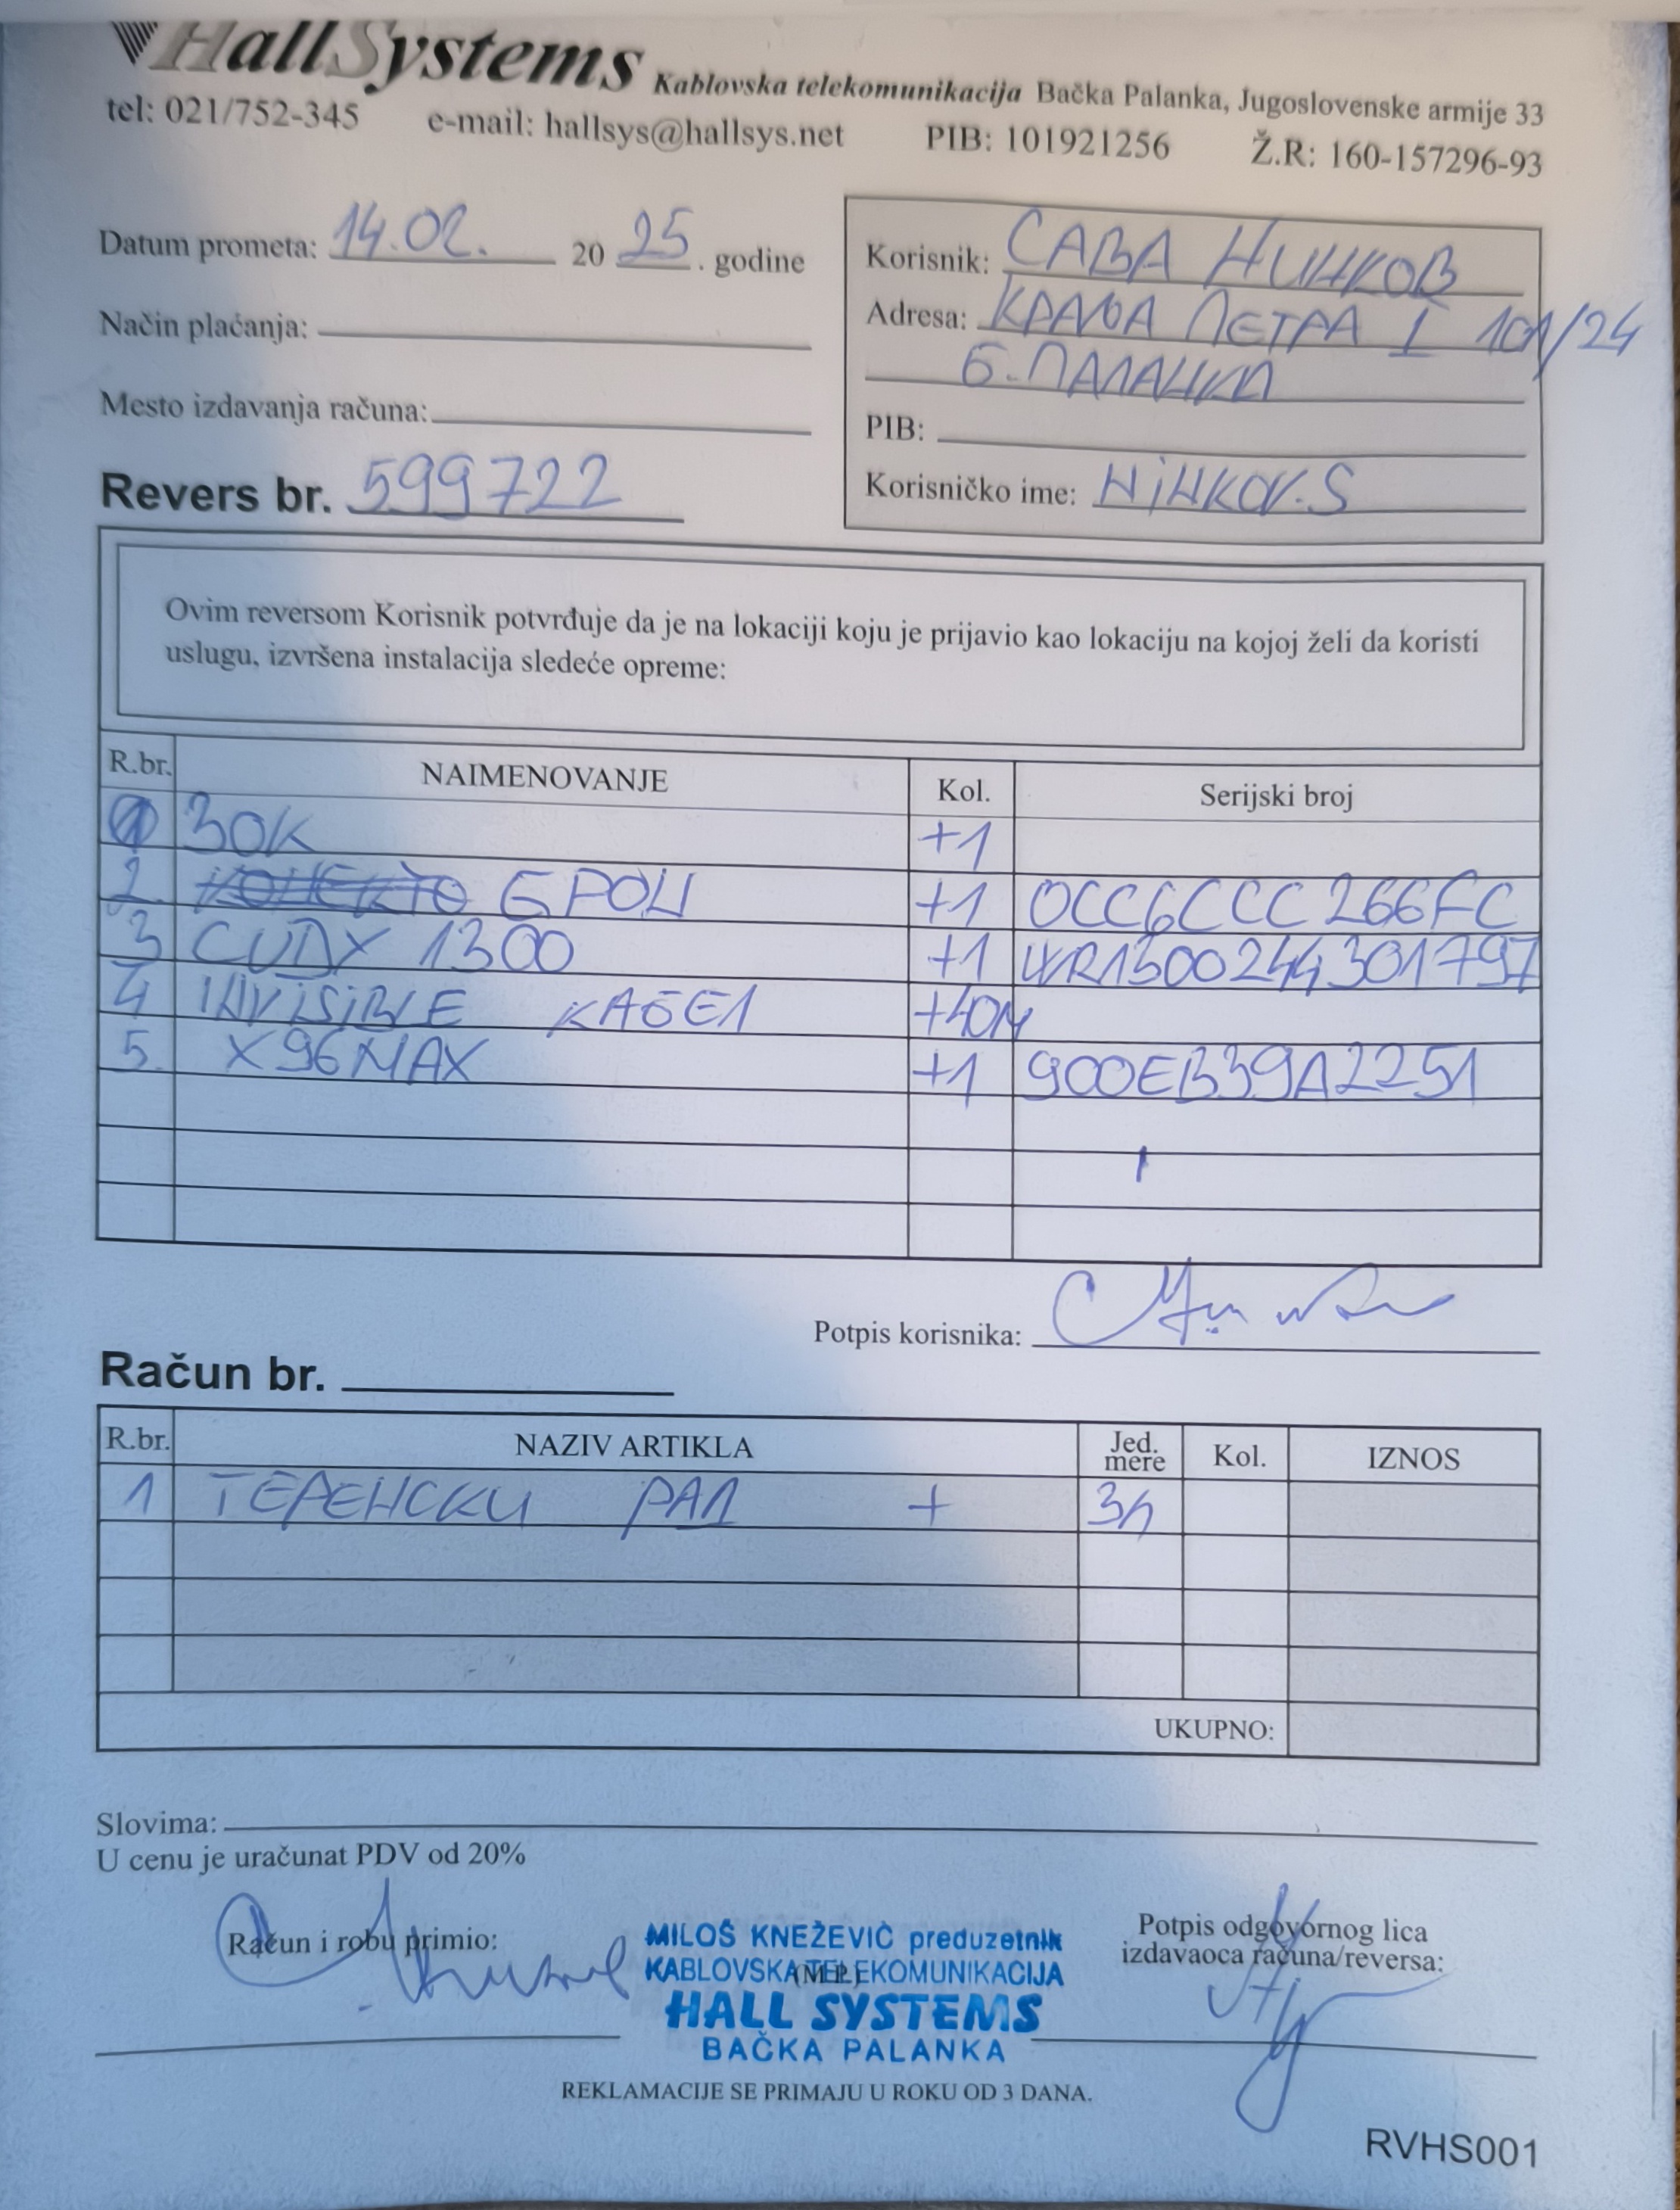 HallSystems Kablovska telekomunikacija Bačka Palanka, Jugoslovenske armije 33
tel: 021/752-345 e-mail: hallsys@hallsys.net PIB: 101921256 Ž.R: 160-157296-93
Datum prometa: 14.02. 20 25. godine
Način plaćanja:
Mesto izdavanja računa:
Revers br. 599722
Korisnik: САВА НИНКОВ
Adresa: КРАЉА ПЕТРА I 101/24
Б. ПАЛАНКА
PIB:
Korisničko ime: NiNKOV.S
Ovim reversom Korisnik potvrđuje da je na lokaciji koju je prijavio kao lokaciju na kojoj želi da koristi
uslugu, izvršena instalacija sledeće opreme:
R.br. NAIMENOVANJE Kol. Serijski broj
1 ЗОК +1
2. EPON +1 0CC6CCC266FC
3 CUDY 1300 +1 WR1300244301797
4 INVISIBLE КАБЕЛ +40М
5. X96MAX +1 900EB39A2251
Potpis korisnika:
Račun br.
R.br. NAZIV ARTIKLA Jed. mere Kol. IZNOS
1 ТЕРЕНСКИ РАД + 3h
UKUPNO:
Slovima:
U cenu je uračunat PDV od 20%
Račun i robu primio:
MILOŠ KNEŽEVIĆ preduzetnik
KABLOVSKA TELEKOMUNIKACIJA
(M.P.)
HALL SYSTEMS
BAČKA PALANKA
Potpis odgovornog lica
izdavaoca računa/reversa:
REKLAMACIJE SE PRIMAJU U ROKU OD 3 DANA.
RVHS001